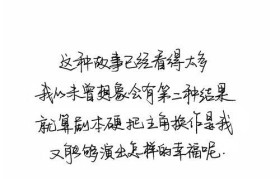 这种故事已经看得太多
我从未曾想象会有第二种结果
就算剧本硬把主角换作是我
又能够演出怎样的幸福呢.